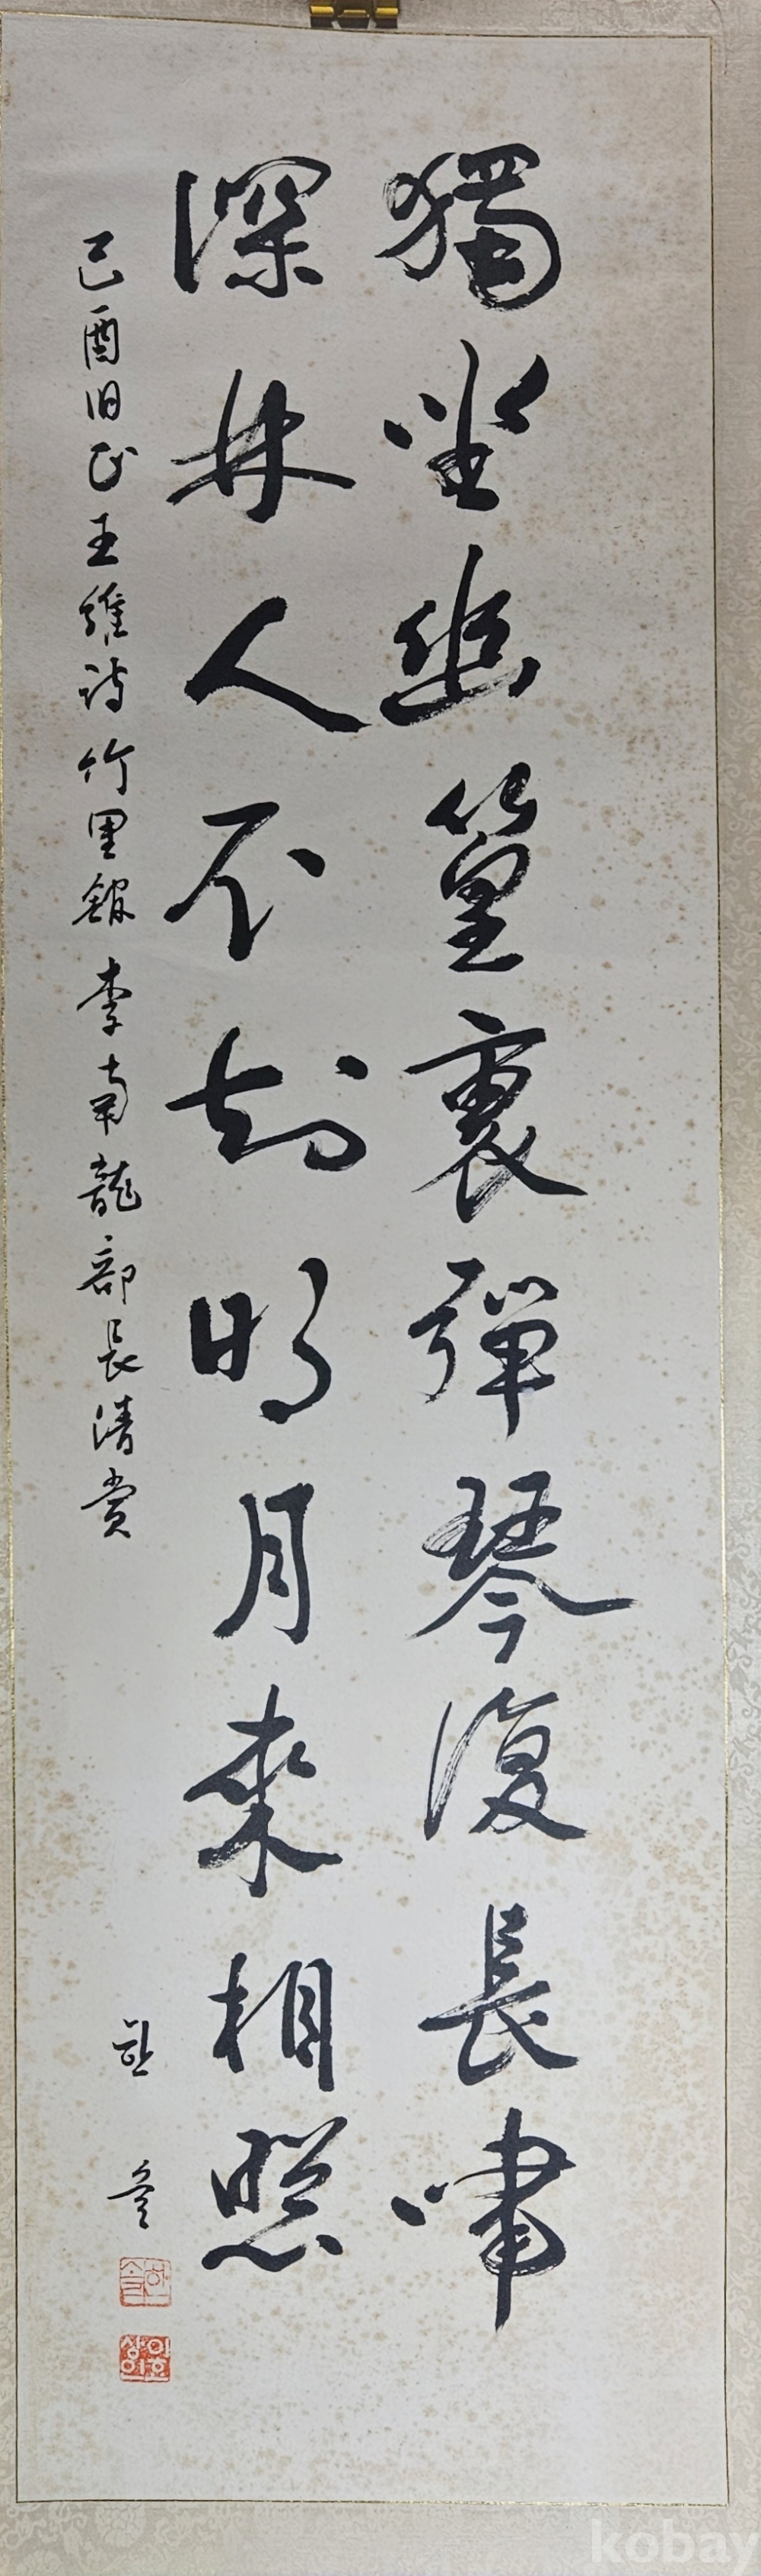 獨坐幽篁裏彈琴復長嘯
深林人不知明月來相照
己酉旧正王維詩竹里館李南龍部長清賞
한솔
한솔
이효상인
kobay